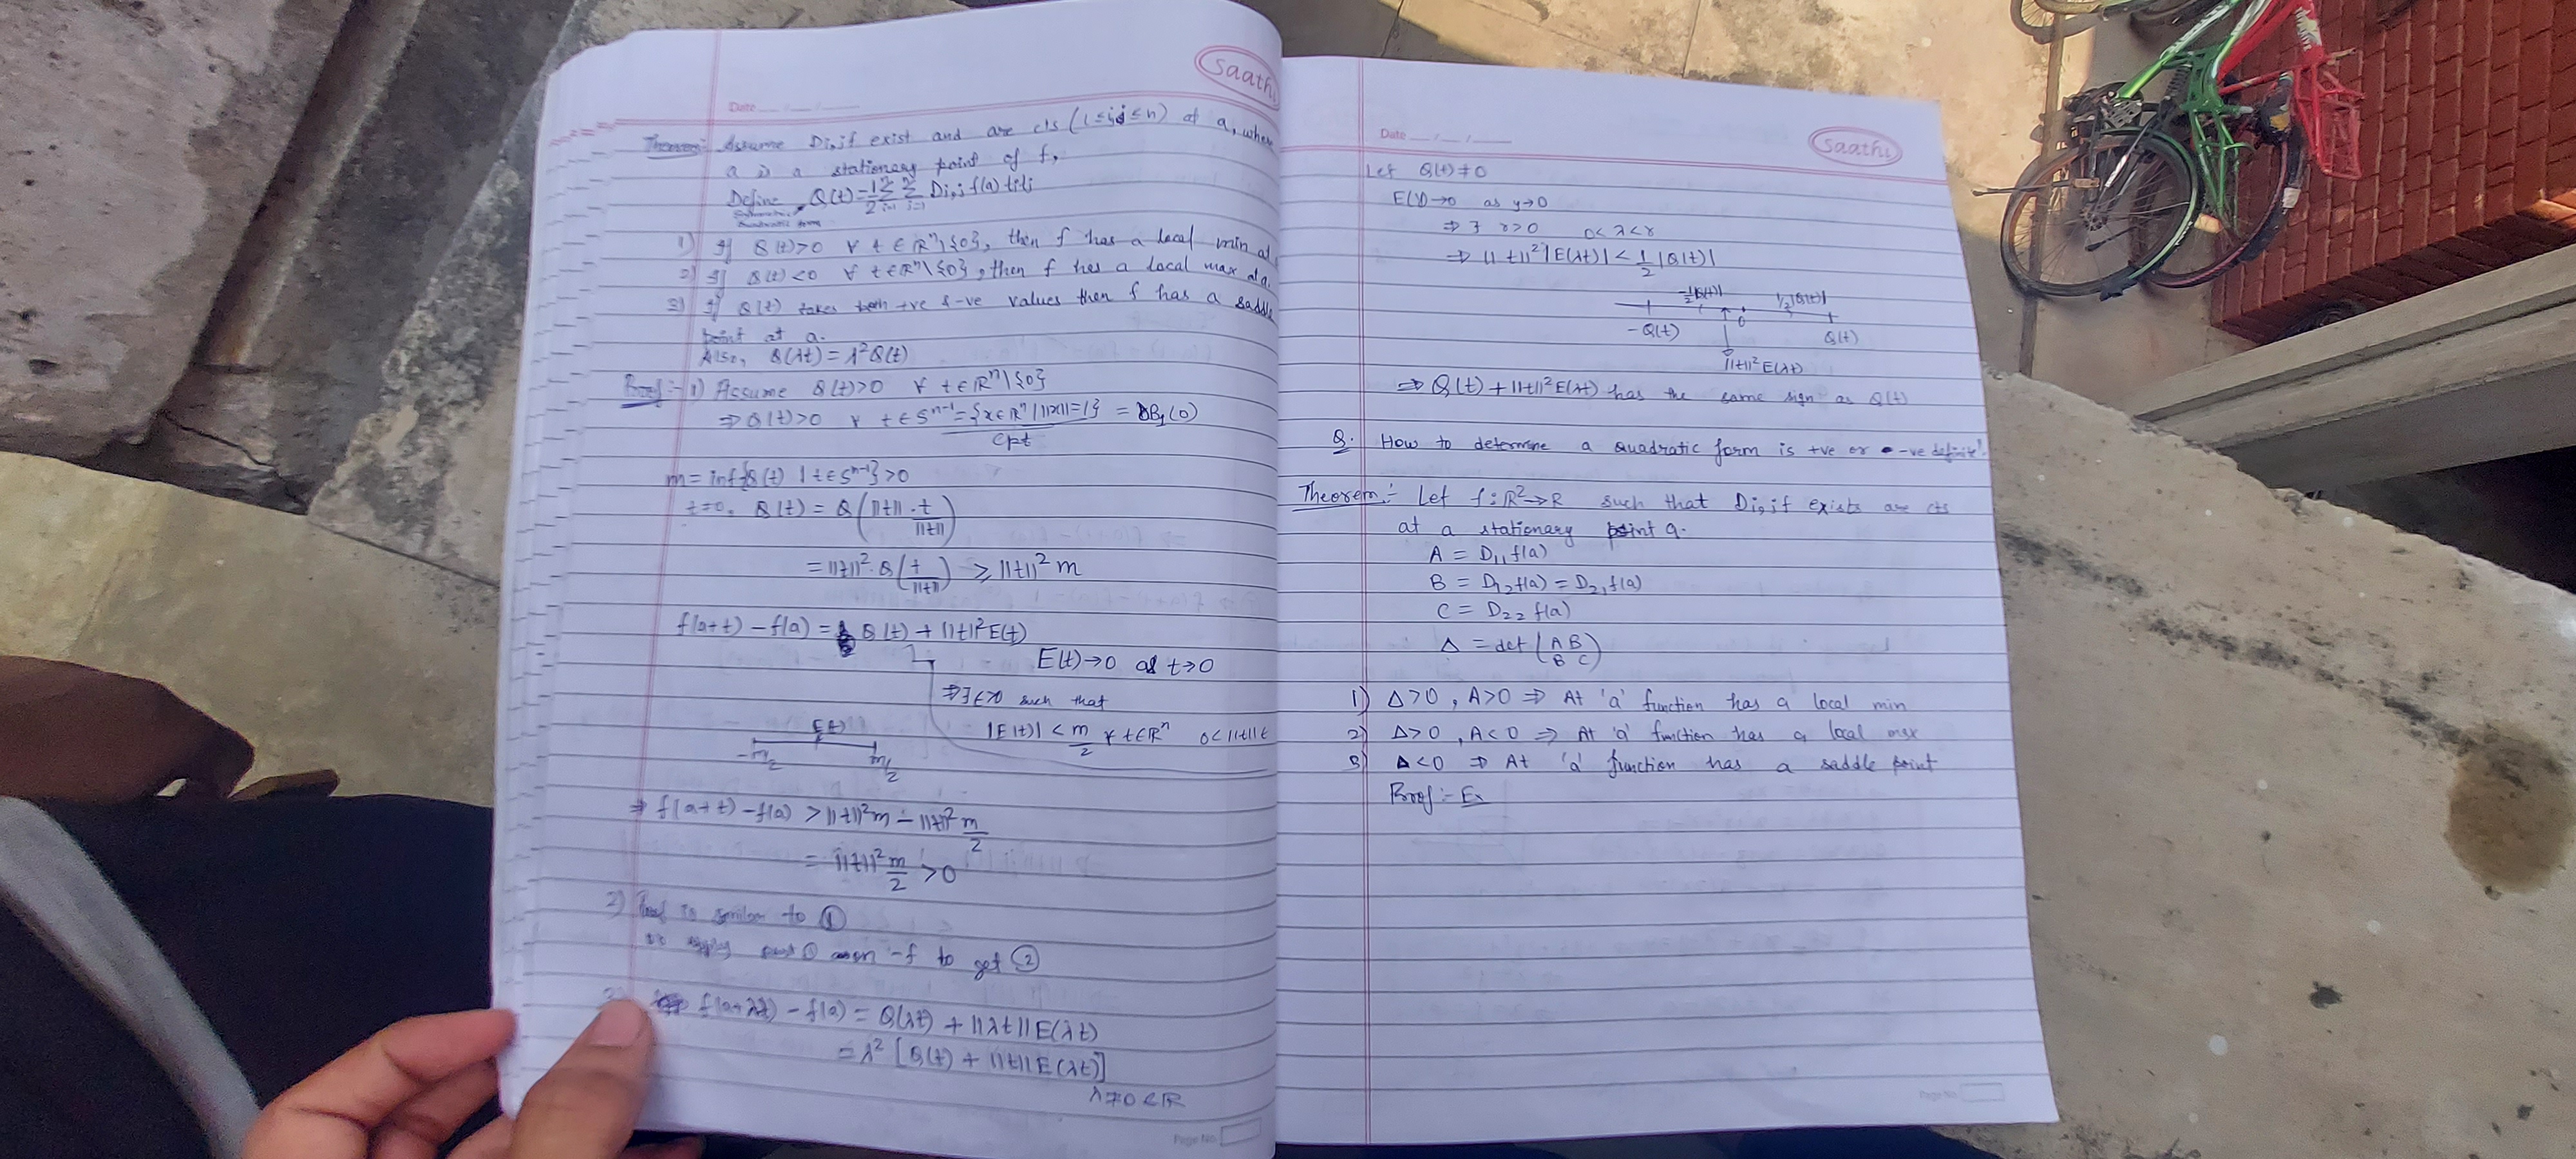 Saathi
Date
Theorem:- Assume Di,jf exist and are cts (1≤i,j≤n) at a, where
a is a stationary point of f,
Define Q(t)=1/2 Σ Σ Di,j f(a) titj
i=1 j=1
quadratic form
1) If Q(t)>0 ∀ t∈ℝⁿ\{0}, then f has a local min at
2) If Q(t)<0 ∀ t∈ℝⁿ\{0}, then f has a local max at a.
3) If Q(t) takes both +ve & -ve values then f has a saddle
point at a.
Also, Q(λt) = λ²Q(t)
Proof:- 1) Assume Q(t)>0 ∀ t∈ℝⁿ\{0}
⇒Q(t)>0 ∀ t∈Sⁿ⁻¹={x∈ℝⁿ| ||x||=1} = ∂B₁(0)
cpt
m = inf{Q(t) | t∈Sⁿ⁻¹}>0
t=0, Q(t) = Q(||t||·t/||t||)
= ||t||²·Q(t/||t||) ≥ ||t||² m
f(a+t)-f(a) = Q(t) + ||t||²E(t)
E(t)→0 as t→0
⇒∃ ε>0 such that
|E(t)| < m/2 ∀ t∈ℝⁿ 0<||t||<ε
E(t)
-m/2 m/2
⇒ f(a+t)-f(a) > ||t||²m - ||t||² m/2
= ||t||² m/2 >0
2) Proof is similar to ①
we apply part ① on -f to get ②
3) f(a+λt) - f(a) = Q(λt) + ||λt||E(λt)
= λ² [Q(t) + ||t||E(λt)]
λ≠0∈ℝ
Page No.
Saathi
Date
Let Q(t)≠0
E(y)→0 as y→0
⇒ ∃ r>0 0<λ<r
⇒ ||t||²|E(λt)| < 1/2 |Q(t)|
-1/2|Q(t)| 1/2|Q(t)|
-Q(t) 0 Q(t)
||t||²E(λt)
⇒ Q(t) + ||t||²E(λt) has the same sign as Q(t)
Q. How to determine a quadratic form is +ve or -ve definite?
Theorem:- Let f:ℝ²→ℝ such that Di,jf exists are cts
at a stationary point a.
A = D₁₁f(a)
B = D₁₂f(a) = D₂₁f(a)
C = D₂₂f(a)
Δ = det (A B
B C)
1) Δ>0, A>0 ⇒ At 'a' function has a local min
2) Δ>0, A<0 ⇒ At 'a' function has a local max
3) Δ<0 ⇒ At 'a' function has a saddle point
Proof:- Ex
Page No.